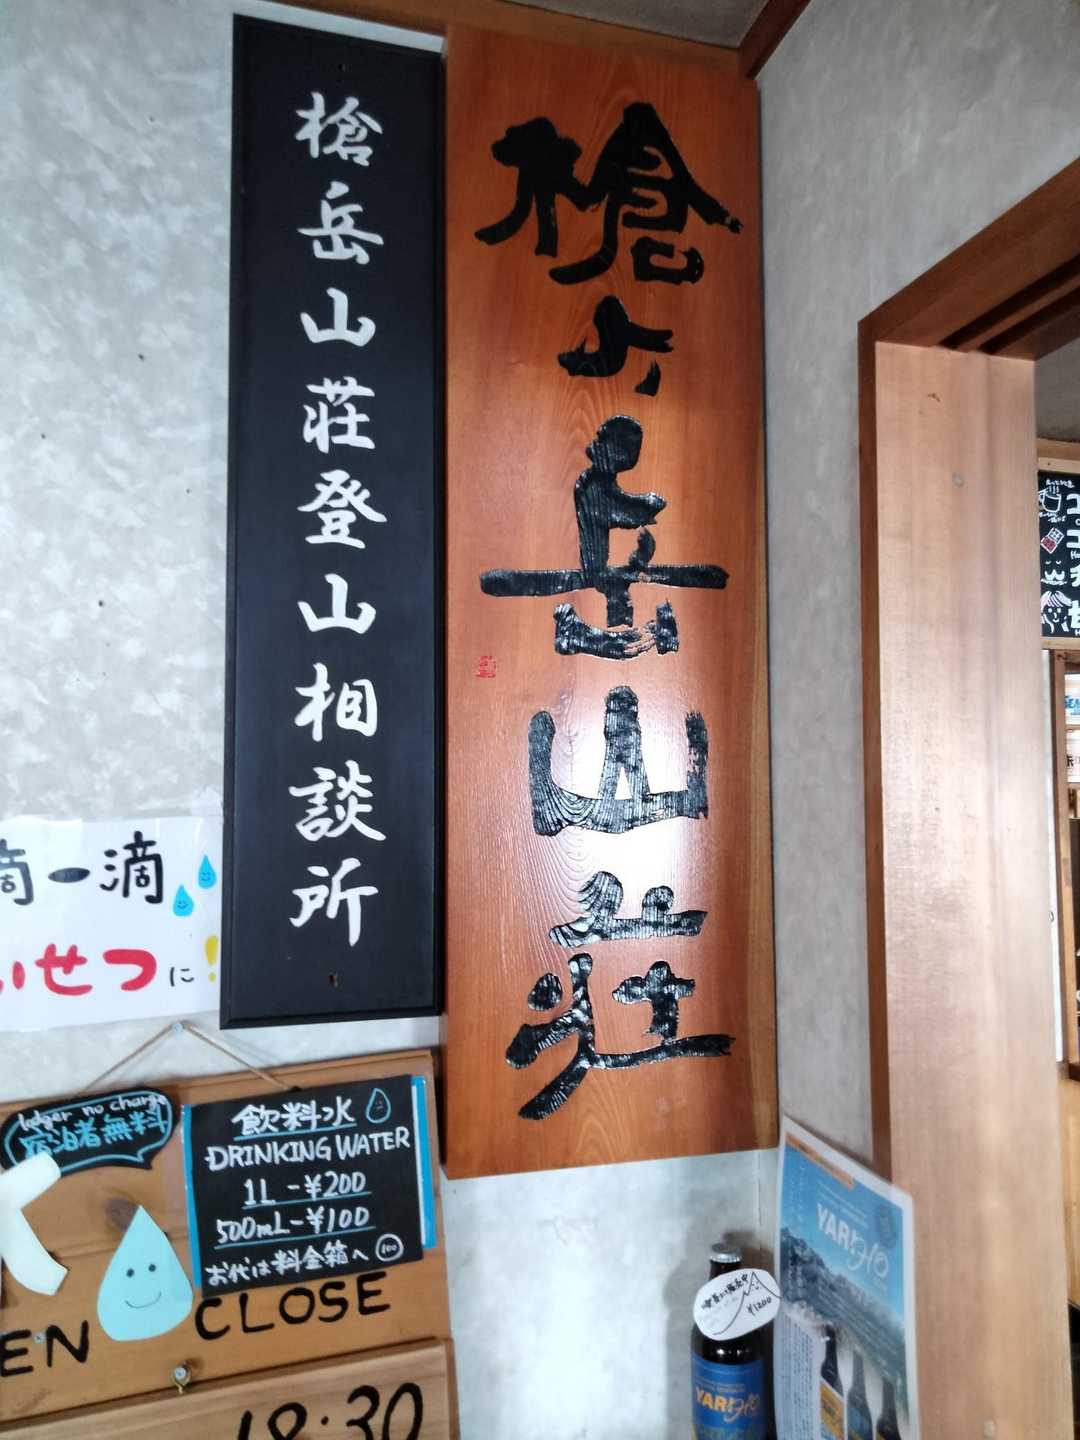 槍ヶ岳山荘
槍岳山荘登山相談所
滴一滴
いせつに!
lodger no charge
宿泊者無料
飲料水
DRINKING WATER
1L-¥200
500mL-¥100
お代は料金箱へ 100
EN
CLOSE
18:30
¥1200
YARI
YARI